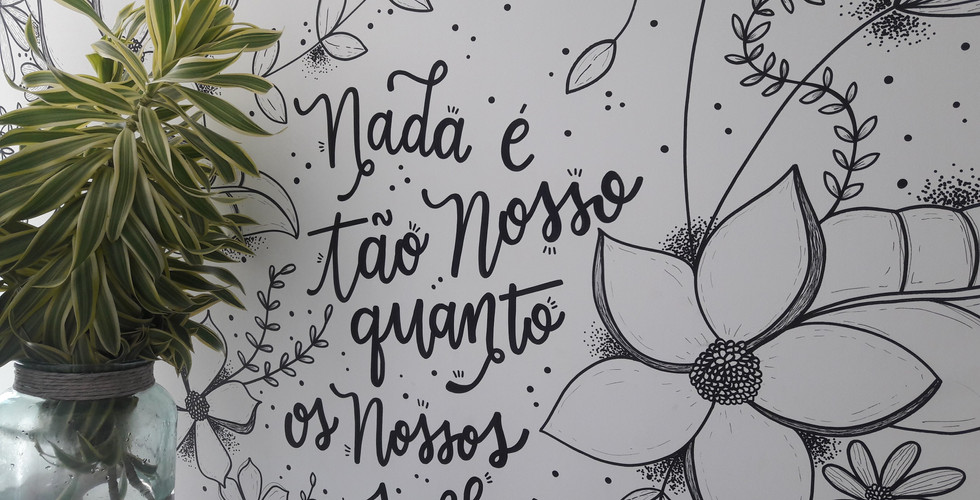 Nada é
tão Nosso
quanto
os Nossos